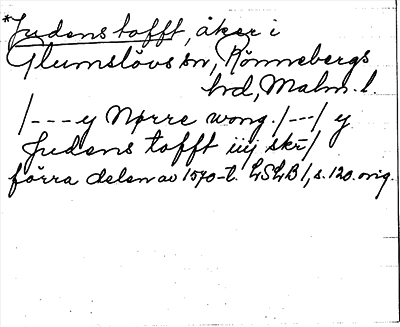 *Judens tofft, åker i
Glumslövs sn, Rönnebergs
hd, Malm. l.
/---y Nørre wong. /---/ y
Judens tofft iij skr/
förra delen av 1570-t. LSLB 1, s. 120. orig.